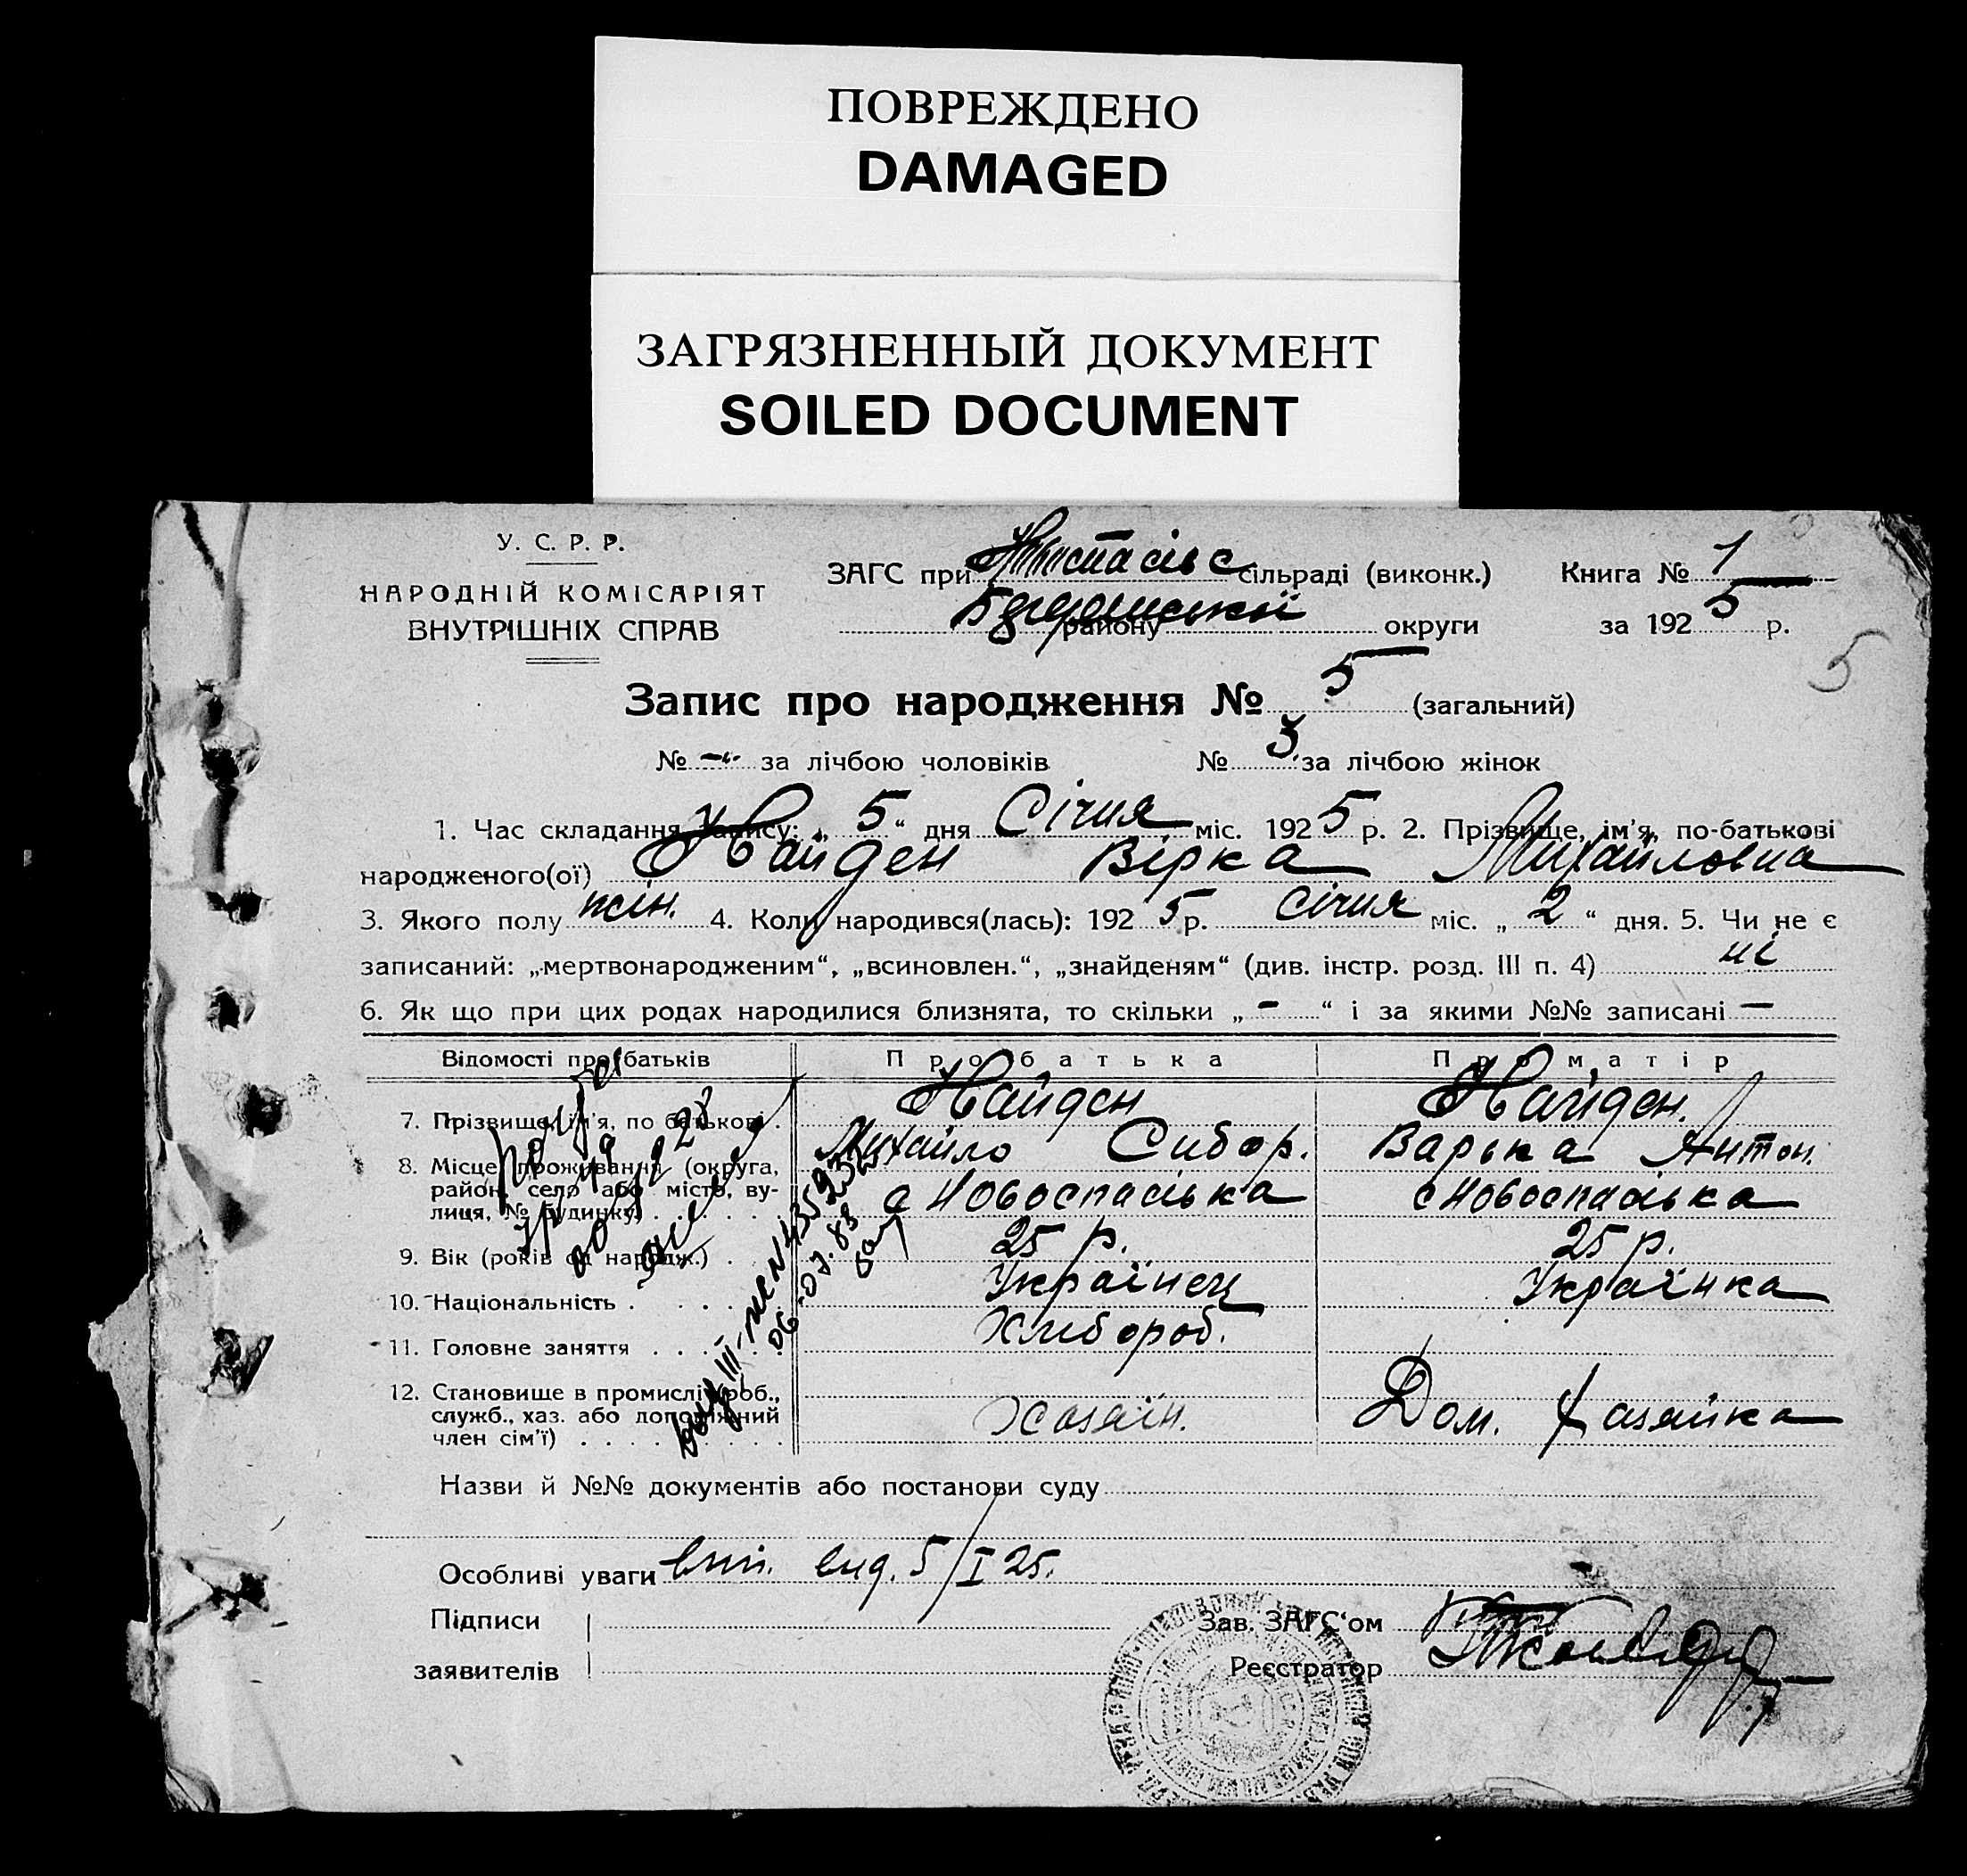 ПОВРЕЖДЕНО
DAMAGED
ЗАГРЯЗНЕННЫЙ ДОКУМЕНТ
SOILED DOCUMENT
У. С. Р. Р.
НАРОДНІЙ КОМІСАРІЯТ
ВНУТРІШНІХ СПРАВ
ЗАГС при сільраді (виконк.)
району округи
Книга № 1
за 1925 р.
5
Запис про народження № 5 (загальний)
№ - за лічбою чоловіків № 3 за лічбою жінок
1. Час складання запису: „ 5 “ дня Січня міс. 1925 р. 2. Прізвище, ім'я, по-батькові
народженого(ої) Найден Вірка Михайловна
3. Якого полу жін. 4. Коли народився(лась): 1925 р. Січня міс. „ 2 “ дня. 5. Чи не є
записаний: „мертвонародженим“, „всиновлен.“, „знайденям“ (див. інстр. розд. III п. 4) ні
6. Як що при цих родах народилися близнята, то скільки „ - “ і за якими №№ записані -
Відомості про батьків Про батька Про матір
7. Прізвище, ім'я, по батькові . Найден Найден.
Михайло Сидор. Варька Антон.
8. Місце проживання (округа, район, село або місто, вулиця, № будинку) . . . . . . с Новоспасівка с Новоспасівка
9. Вік (років од народж.) . 25 р. 25 р.
10. Національність . . . . . Українец Українка
11. Головне заняття . . . . Хлибороб.
12. Становище в промислі (роб., служб., хаз. або допоміжний член сім'ї) . . . . . . . . Хазаїн. Дом. Хазяйка
Назви й №№ документів або постанови суду
Особливі уваги вид. 5/I 25.
Підписи
заявителів
Зав. ЗАГС‘ом
Реєстратор